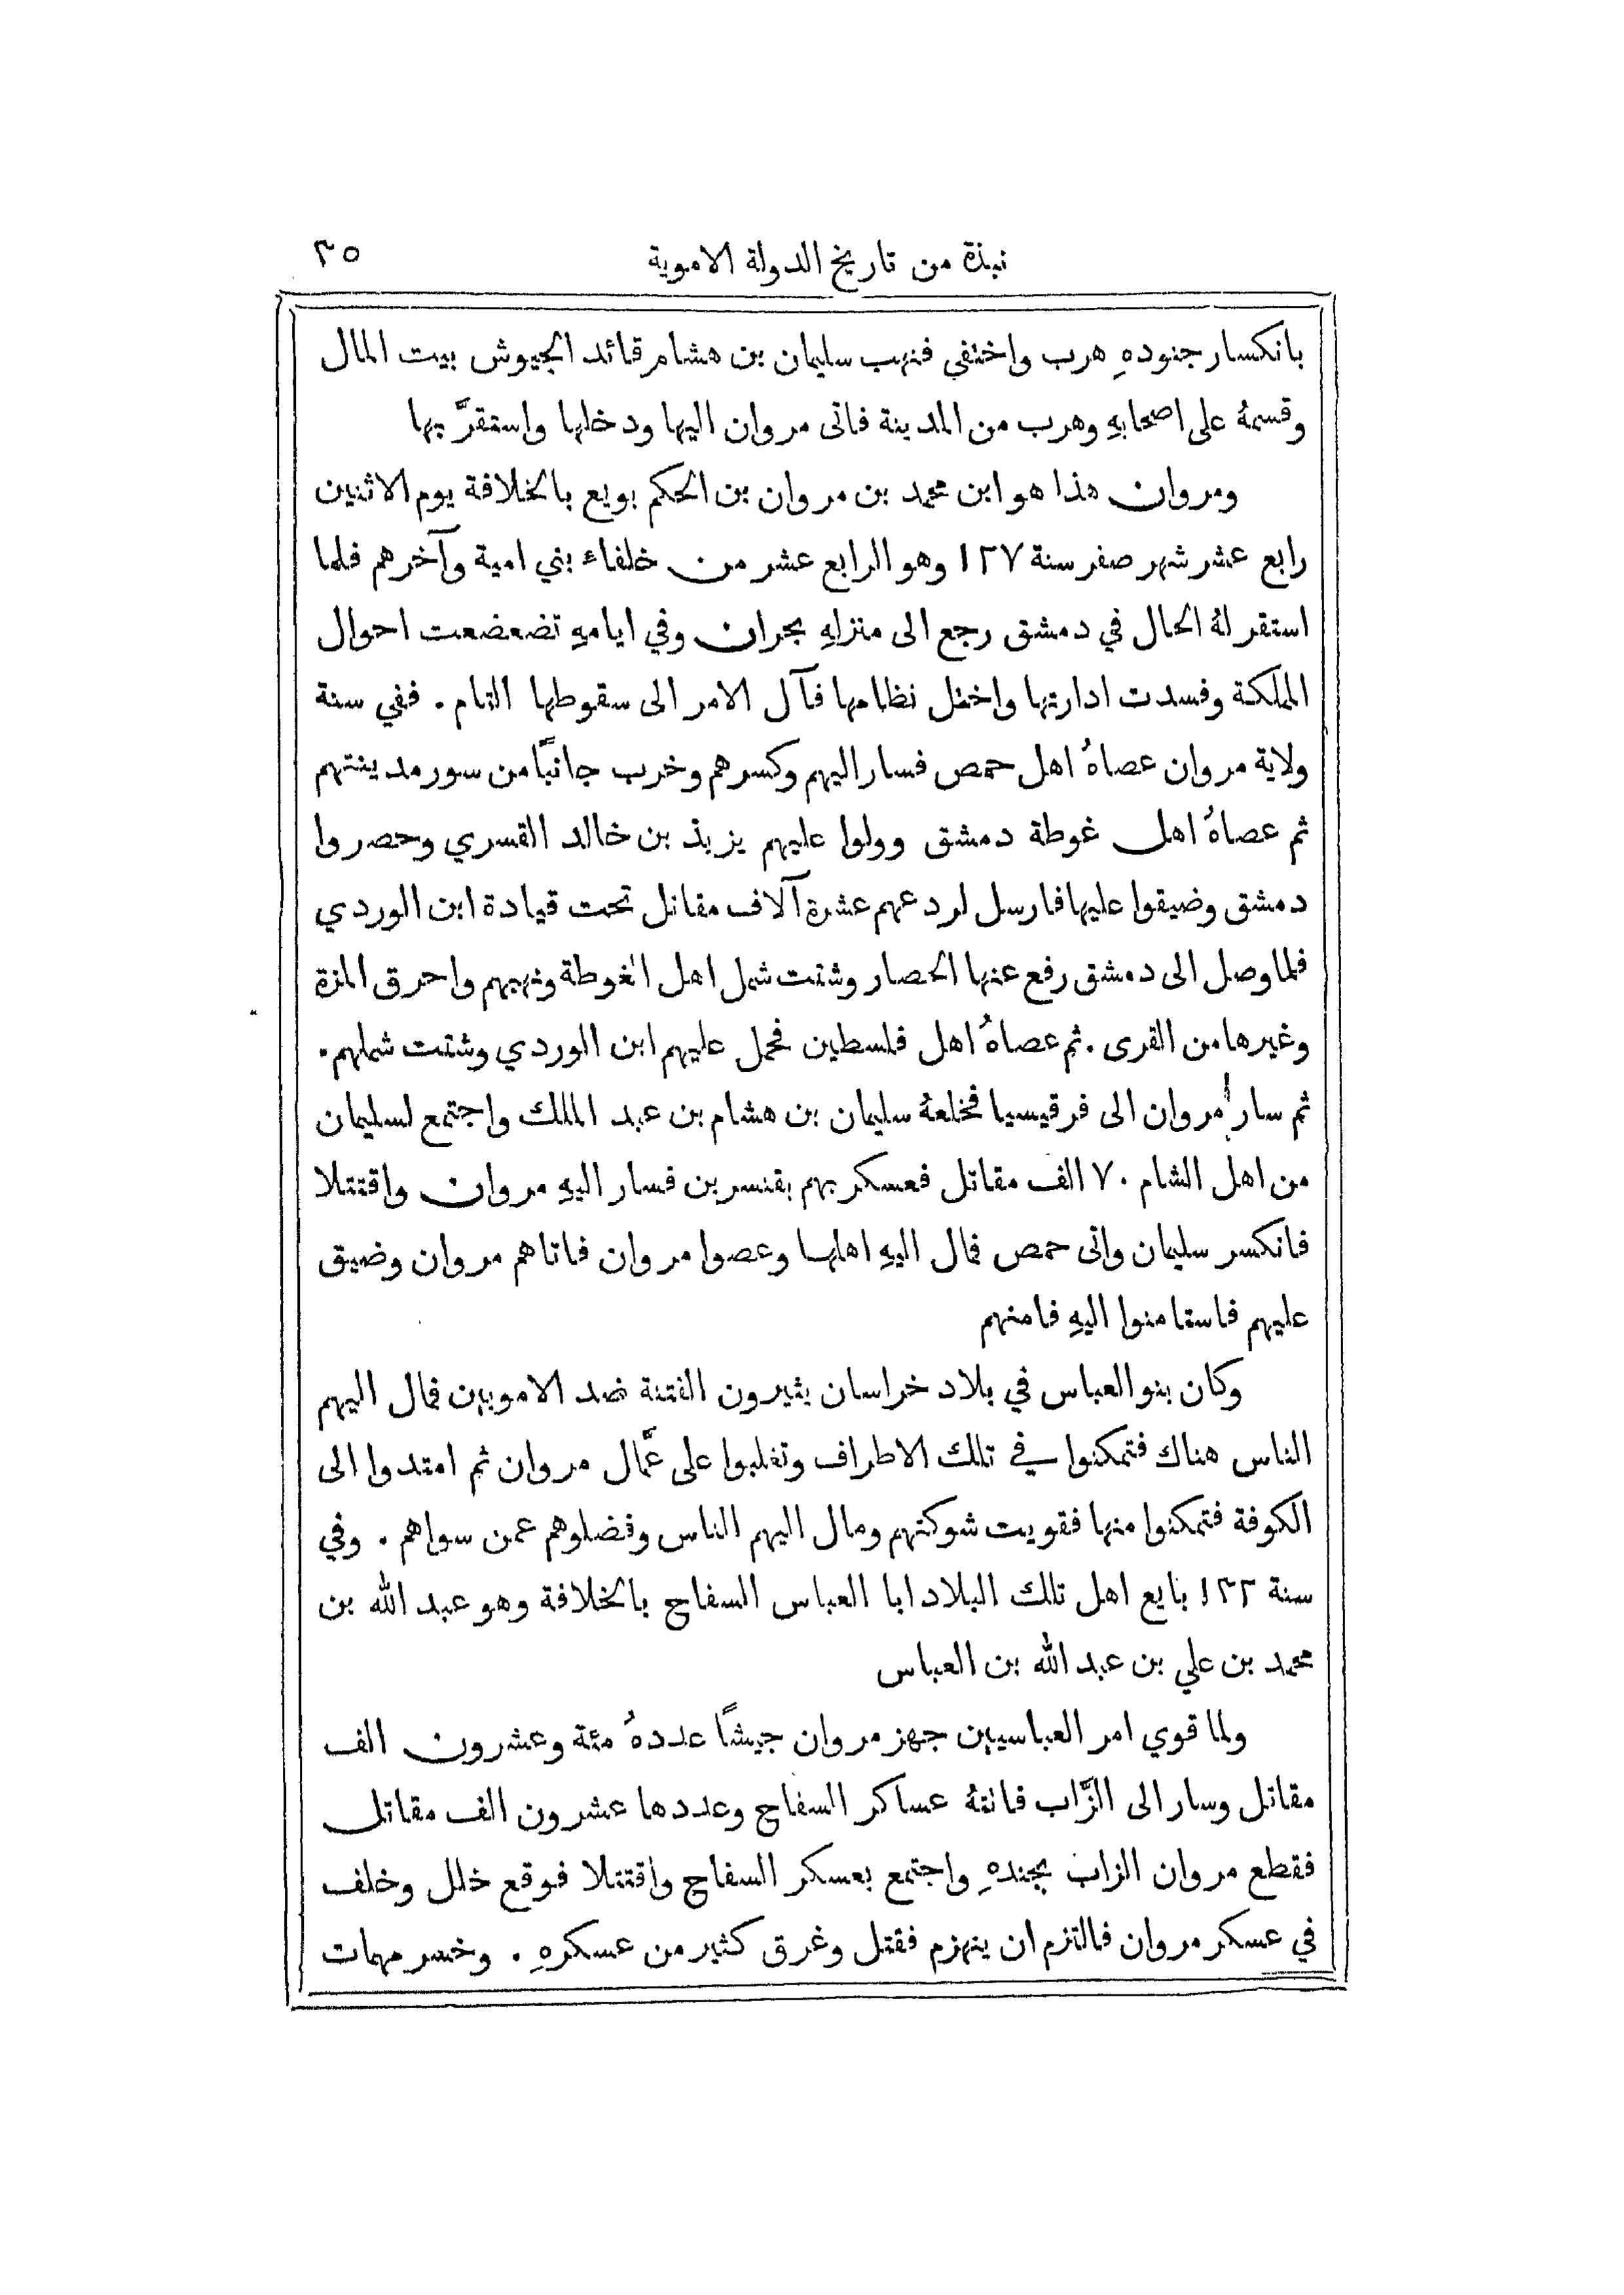 نبذة من تاريخ الدولة الاموية ٣٥
بانكسار جنودهِ هرب واختفي فنهب سليمان بن هشام قائد الجيوش بيت المال
وقسمهُ على اصحابهِ وهرب من المدينة فاتى مروان اليها ودخلها واستقرَّ بها
ومروان هذا هو ابن محمد بن مروان بن الحكم بويع بالخلافة يوم الاثنين
رابع عشر شهر صفر سنة ١٢٧ وهو الرابع عشر من خلفاء بني امية وآخرهم فلما
استقر لهُ الحال في دمشق رجع الى منزلهِ بحران وفي ايامهِ تضعضعت احوال
المملكة وفسدت ادارتها واختل نظامها فآل الامر الى سقوطها التام . ففي سنة
ولاية مروان عصاهُ اهل حمص فسار اليهم وكسرهم وخرب جانبًا من سور مدينتهم
ثم عصاهُ اهل غوطة دمشق وولوا عليهم يزيد بن خالد القسري وحصروا
دمشق وضيقوا عليها فارسل لردعهم عشرة آلاف مقاتل تحت قيادة ابن الوردي
فلما وصل الى دمشق رفع عنها الحصار وشتت شمل اهل الغوطة ونهبهم واحرق المزة
وغيرها من القرى . ثم عصاهُ اهل فلسطين فحمل عليهم ابن الوردي وشتت شملهم .
ثم سار مروان الى قرقيسيا فخلعهُ سليمان بن هشام بن عبد الملك واجتمع لسليمان
من اهل الشام ٧٠ الف مقاتل فعسكر بهم بقنسرين فسار اليهِ مروان واقتتلا
فانكسر سليمان واتى حمص فمال اليهِ اهلها وعصوا مروان فاتاهم مروان وضيق
عليهم فاستامنوا اليهِ فامنهم
وكان بنو العباس في بلاد خراسان يثيرون الفتنة ضد الامويين فمال اليهم
الناس هناك فتمكنوا في تلك الاطراف وتغلبوا على عمَّال مروان ثم امتدوا الى
الكوفة فتمكنوا منها فقويت شوكتهم ومال اليهم الناس وفضلوهم عمن سواهم . وفي
سنة ١٣٢ بايع اهل تلك البلاد ابا العباس السفاح بالخلافة وهو عبد الله بن
محمد بن علي بن عبد الله بن العباس
ولما قوي امر العباسيين جهز مروان جيشًا عددهُ مئة وعشرون الف
مقاتل وسار الى الزَّاب فاتتهُ عساكر السفاح وعددها عشرون الف مقاتل
فقطع مروان الزاب بجندهِ واجتمع بعسكر السفاح واقتتلا فوقع خلل وخلف
في عسكر مروان فالتزم ان ينهزم فقتل وغرق كثير من عسكرهِ . وخسر مهمات